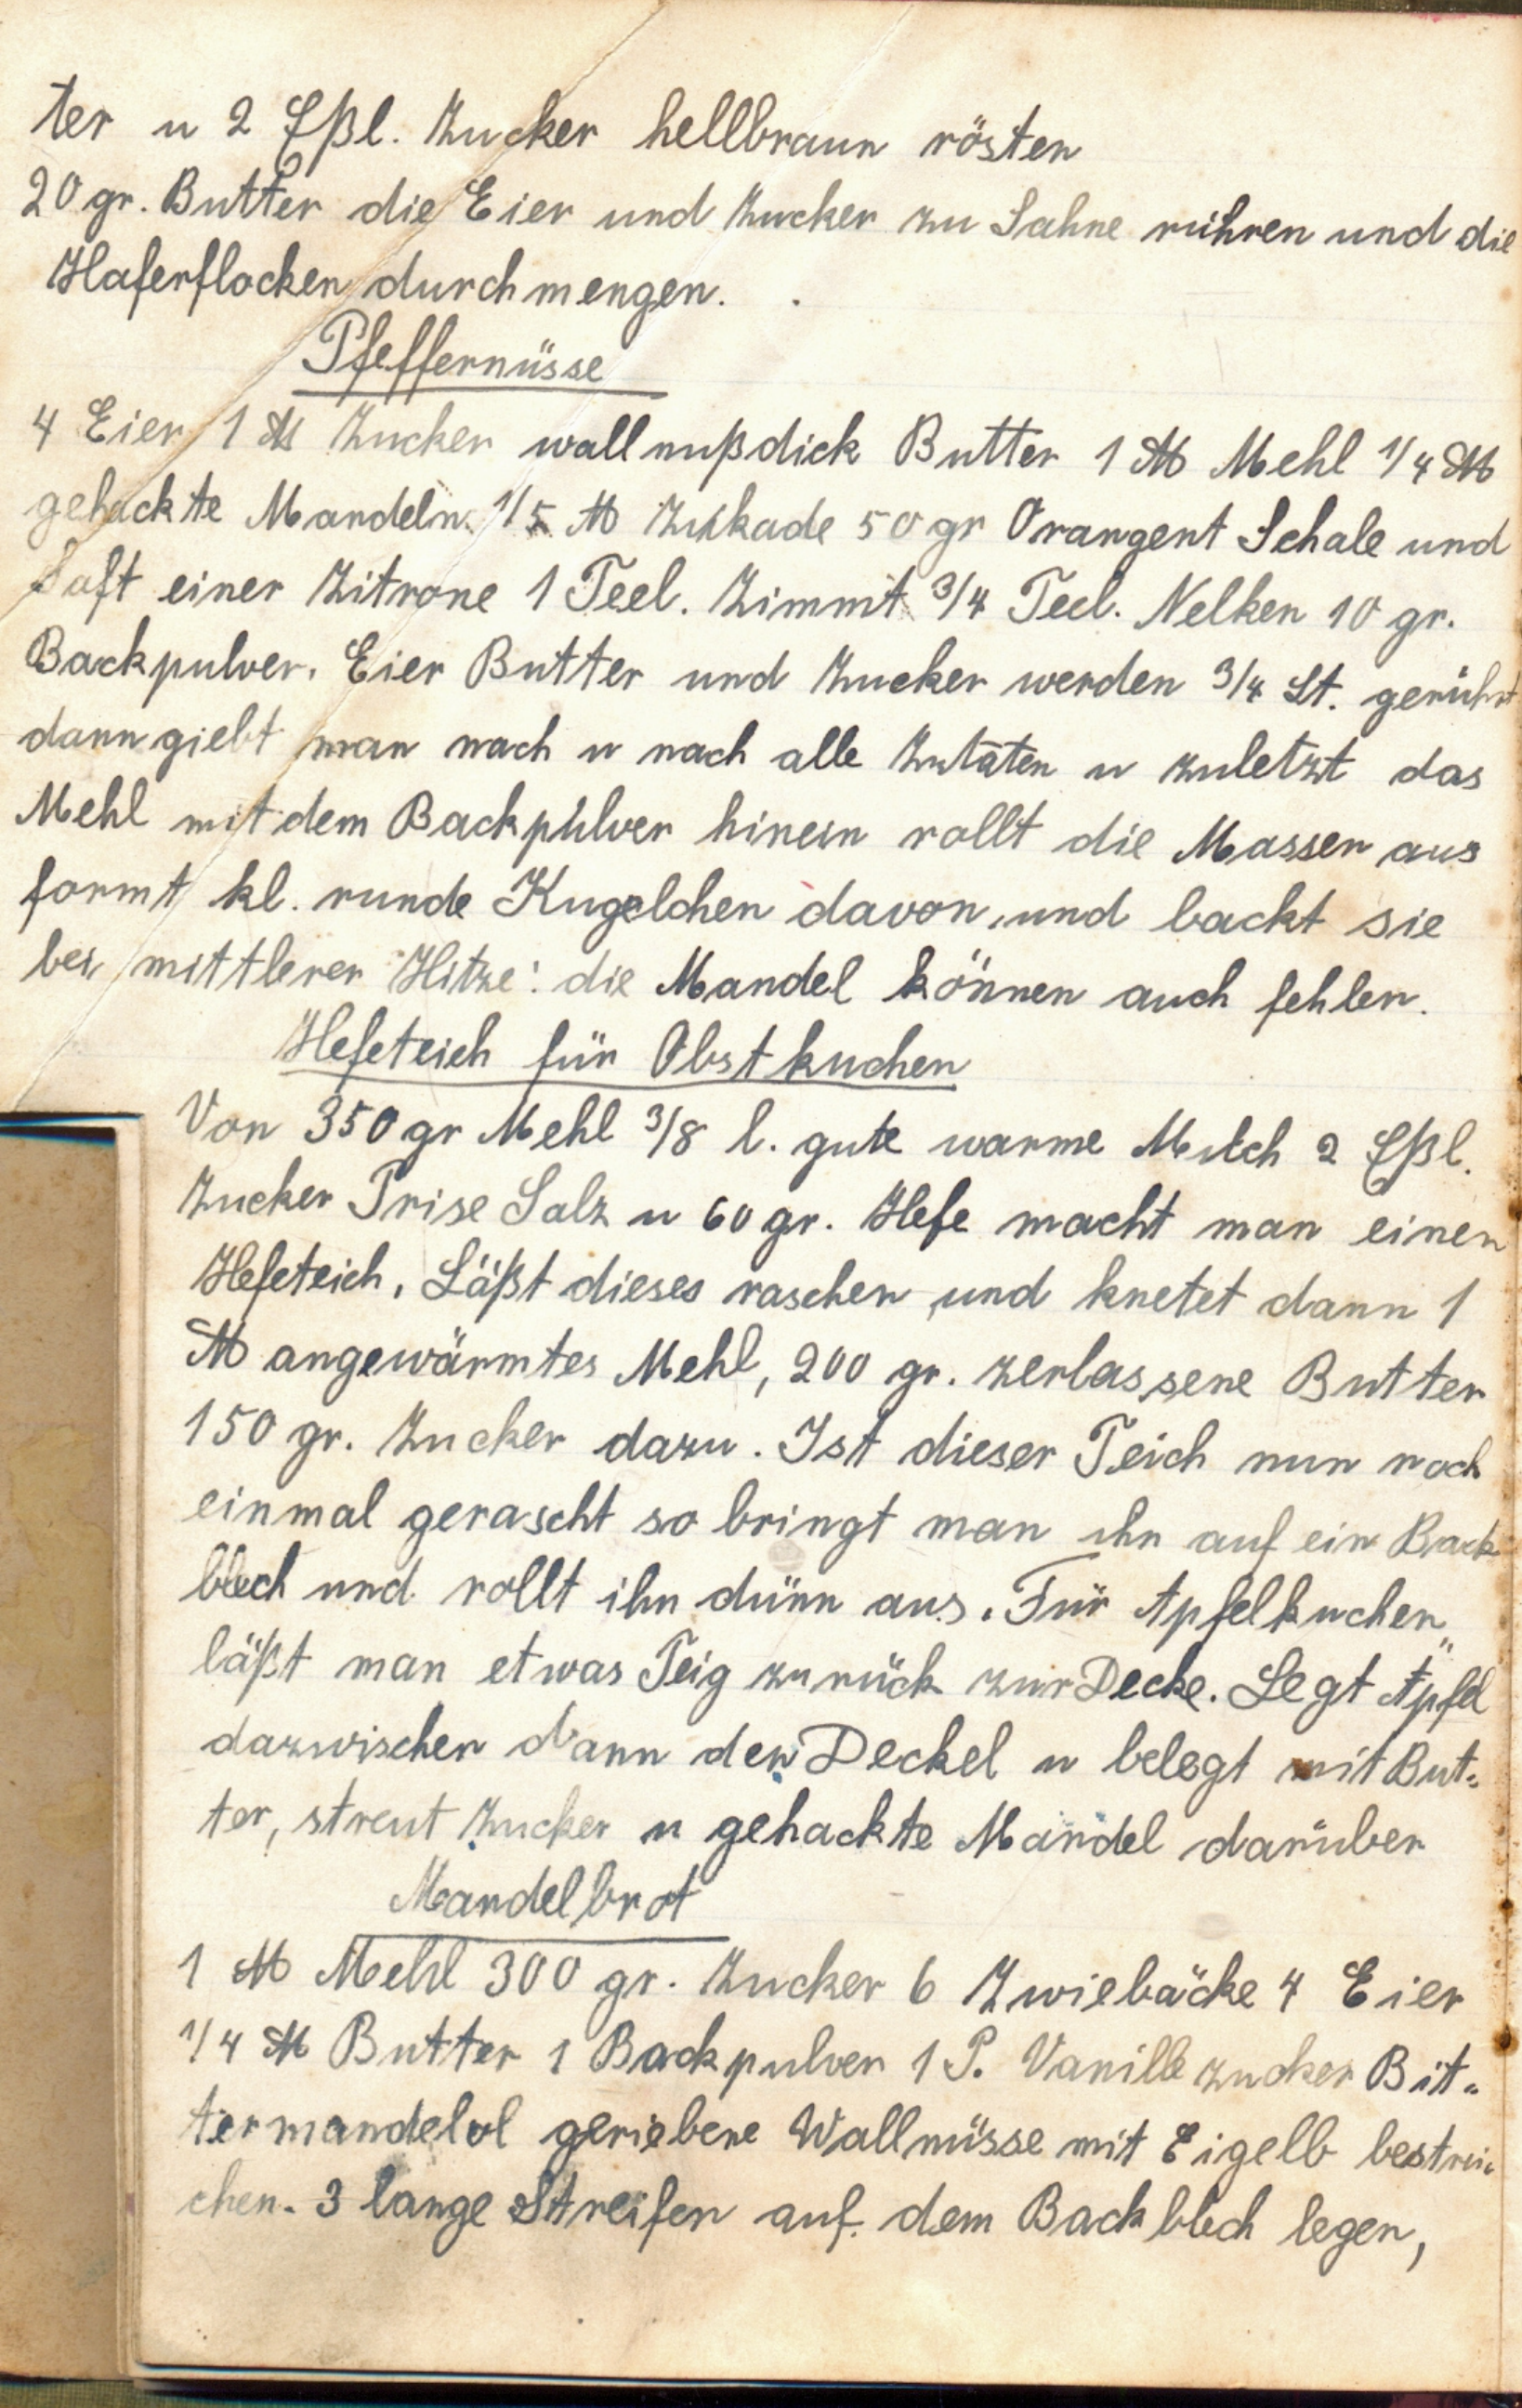 ter u 2 Eßl. Zucker hellbraun rösten
20 gr. Butter die Eier und Zucker zu Sahne rühren und die
Haferflocken durchmengen.
Pfeffernüsse
4 Eier 1 ℔ Zucker wallnußdick Butter 1 ℔ Mehl 1/4 ℔
gehackte Mandeln 1/5 ℔ Zukade 50 gr Orangent Schale und
Saft einer Zitrone 1 Teel. Zimmt 3/4 Teel. Nelken 10 gr.
Backpulver. Eier Butter und Zucker werden 3/4 St. gerührt
dann giebt man nach u nach alle Zutaten u zuletzt das
Mehl mit dem Backpulver hinein rollt die Massen aus
formt kl. runde Kugelchen davon, und backt sie
bei mittlerer Hitze: die Mandel können auch fehlen.
Hefeteich für Obstkuchen
Von 350 gr Mehl 3/8 l. gute warme Milch 2 Eßl.
Zucker Prise Salz u 60 gr. Hefe macht man einen
Hefeteich. Läßt dieses raschen und knetet dann 1
℔ angewärmtes Mehl, 200 gr. zerlassene Butter
150 gr. Zucker dazu. Ist dieser Teich nun noch
einmal gerascht so bringt man ihn auf ein Back
blech und rollt ihn dünn aus. Für Apfelkuchen
läßt man etwas Teig zurück zur Decke. Legt Äpfel
dazwischen dann den Deckel u belegt mit But=
ter, streut Zucker u gehackte Mandel darüber
Mandelbrot
1 ℔ Mehl 300 gr. Zucker 6 Zwiebäcke 4 Eier
1/4 ℔ Butter 1 Backpulver 1 P. Vanillezucker Bit=
termandelol geriebene Wallnüsse mit Eigelb bestrei=
chen. 3 lange Streifen auf dem Backblech legen,